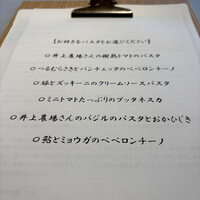 【お好きなパスタをお選びください】
○井上農場さんの樹熟トマトのパスタ
○つるむらさきとパンチェッタのペペロンチーノ
○鮭とズッキーニのクリームソースパスタ
○ミニトマトたっぷりのプッタネスカ
○井上農場さんのバジルのパスタとおかひじき
○鮎とミョウガのペペロンチーノ